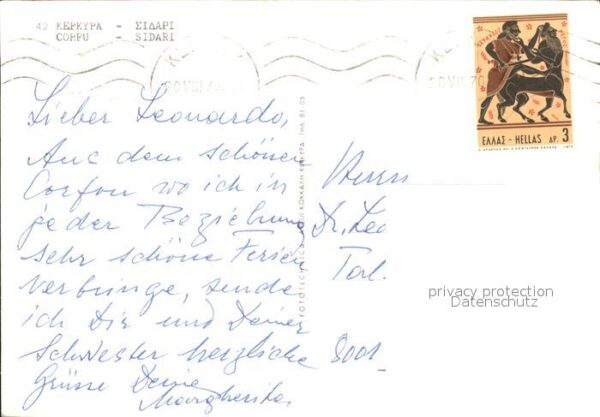 42 ΚΕΡΚΥΡΑ - ΣΙΔΑΡΙ
CORFU - SIDARI
Lieber Leonardo,
Aus dem schönen
Corfou wo ich in
jeder Beziehung
sehr schöne Ferien
verbringe, sende
ich Dir und Deiner
Schwester herzliche
Grüsse Deine
Margherita
Herrn
Dr. Leo
Tal.
8001
privacy protection
Datenschutz
ΕΛΛΑΣ - HELLAS ΔΡ. 3